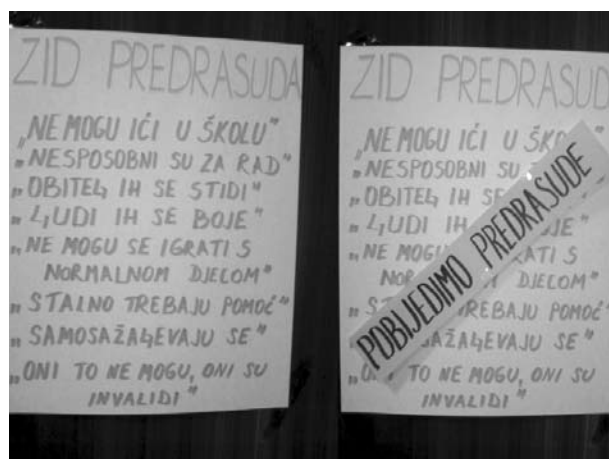 ZID PREDRASUDA
„NE MOGU IĆI U ŠKOLU"
„NESPOSOBNI SU ZA RAD"
„OBITELJ IH SE STIDI"
„LJUDI IH SE BOJE"
„NE MOGU SE IGRATI S
NORMALNOM DJELOM"
„STALNO TREBAJU POMOĆ"
„SAMOSAŽALJEVAJU SE"
„ONI TO NE MOGU, ONI SU
INVALIDI"
ZID PREDRASUD
„NE MOGU IĆI U ŠKO
„NESPOSOBNI SU
„OBITELJ IH SE
„LJUDI IH JE"
„NE MOGU RATI S
DJELOM"
REBAJU POMOĆ"
AŽALJEVAJU SE"
TO NE MOGU, ONI SU
INVALIDI"
POBIJEDIMO PREDRASUDE